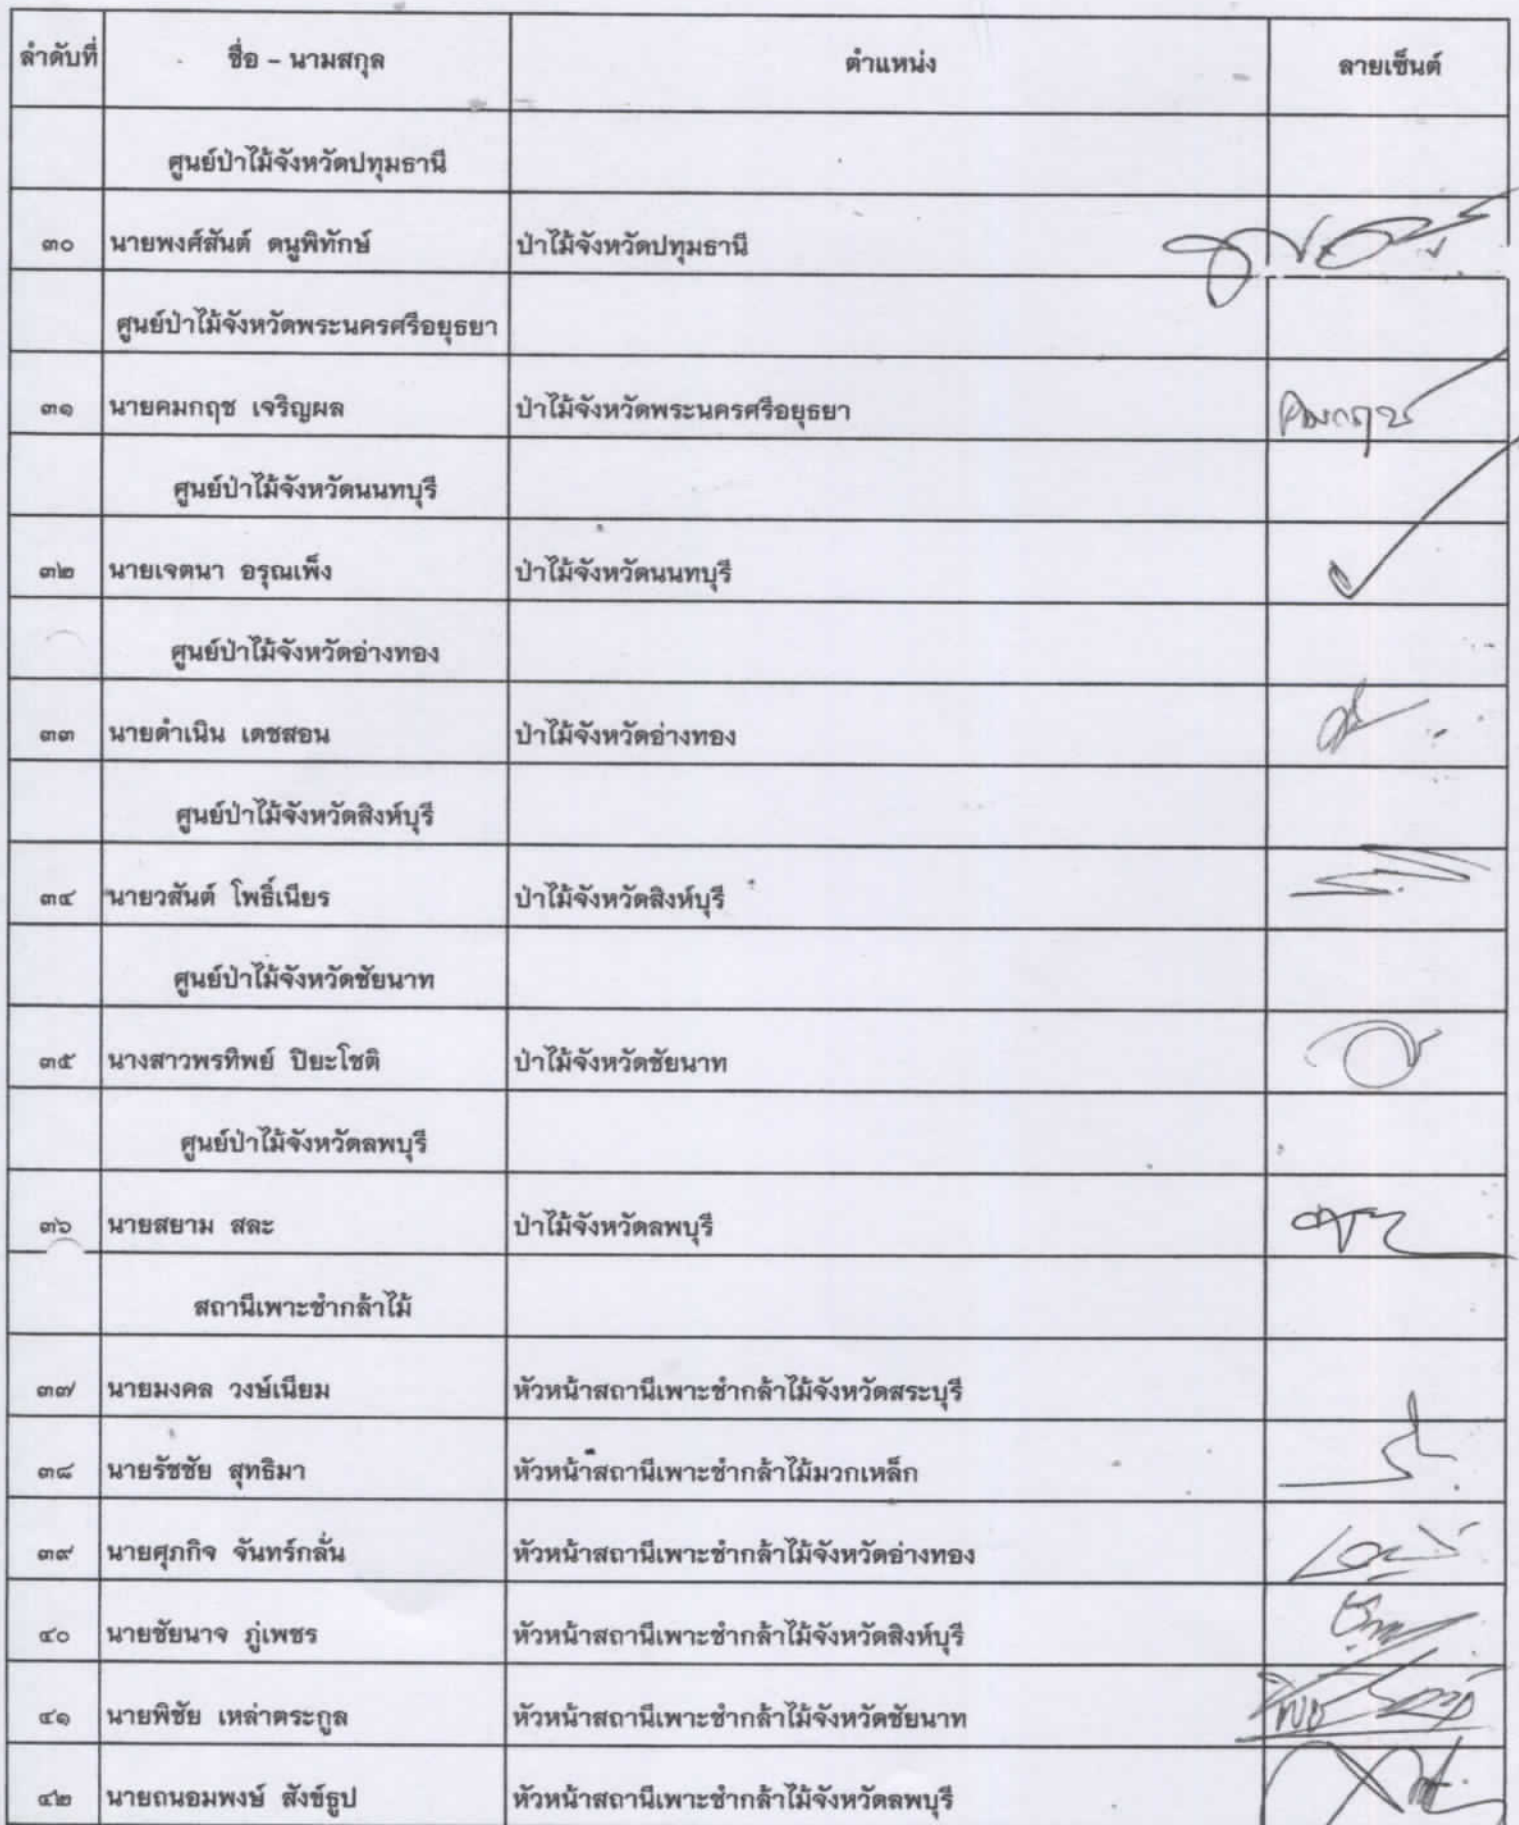 ลำดับที่ ชื่อ - นามสกุล ตำแหน่ง ลายเซ็นต์
ศูนย์ป่าไม้จังหวัดปทุมธานี
๓๐ นายพงศ์สันต์ ดนูพิทักษ์ ป่าไม้จังหวัดปทุมธานี
ศูนย์ป่าไม้จังหวัดพระนครศรีอยุธยา
๓๑ นายคมกฤช เจริญผล ป่าไม้จังหวัดพระนครศรีอยุธยา คมกฤช
ศูนย์ป่าไม้จังหวัดนนทบุรี
๓๒ นายเจตนา อรุณเพ็ง ป่าไม้จังหวัดนนทบุรี
ศูนย์ป่าไม้จังหวัดอ่างทอง
๓๓ นายดำเนิน เดชสอน ป่าไม้จังหวัดอ่างทอง
ศูนย์ป่าไม้จังหวัดสิงห์บุรี
๓๔ นายวสันต์ โพธิ์เนียร ป่าไม้จังหวัดสิงห์บุรี
ศูนย์ป่าไม้จังหวัดชัยนาท
๓๕ นางสาวพรทิพย์ ปิยะโชติ ป่าไม้จังหวัดชัยนาท
ศูนย์ป่าไม้จังหวัดลพบุรี
๓๖ นายสยาม สละ ป่าไม้จังหวัดลพบุรี
สถานีเพาะชำกล้าไม้
๓๗ นายมงคล วงษ์เนียม หัวหน้าสถานีเพาะชำกล้าไม้จังหวัดสระบุรี
๓๘ นายรัชชัย สุทธิมา หัวหน้าสถานีเพาะชำกล้าไม้มวกเหล็ก
๓๙ นายศุภกิจ จันทร์กลั่น หัวหน้าสถานีเพาะชำกล้าไม้จังหวัดอ่างทอง
๔๐ นายชัยนาจ ภู่เพชร หัวหน้าสถานีเพาะชำกล้าไม้จังหวัดสิงห์บุรี
๔๑ นายพิชัย เหล่าตระกูล หัวหน้าสถานีเพาะชำกล้าไม้จังหวัดชัยนาท
๔๒ นายถนอมพงษ์ สังข์ธูป หัวหน้าสถานีเพาะชำกล้าไม้จังหวัดลพบุรี